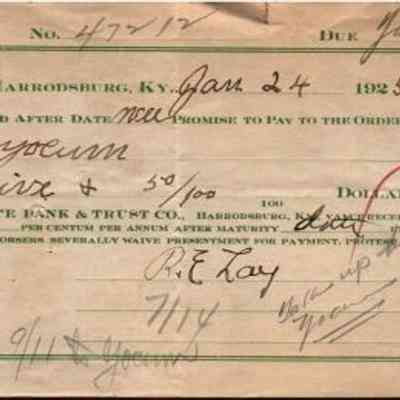 No. 47212 DUE
HARRODSBURG, KY. Jan 24 192
D AFTER DATE we PROMISE TO PAY TO THE ORDER
Yocum
ive & 50/100 100 DOLLA
TE BANK & TRUST CO., HARRODSBURG, KY. VALUE RECE
PER CENTUM PER ANNUM AFTER MATURITY date
ORSERS SEVERALLY WAIVE PRESENTMENT FOR PAYMENT, PROTEST
R.E. Lay
7/14
up
Yocum
9/11 to Yocum